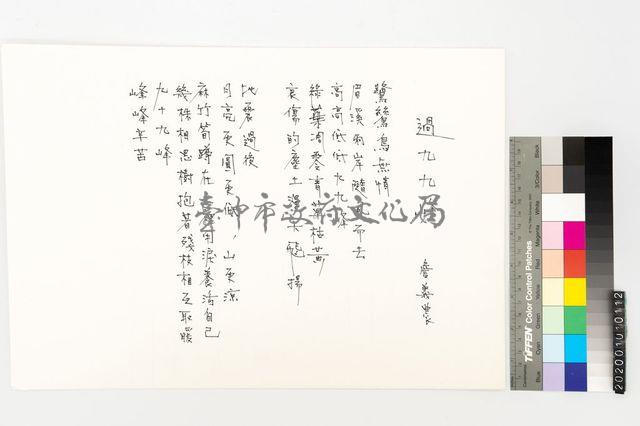 過九九
詹義農
鷺鷥鳥無情
眉溪兩岸隨而去
高高低低九九峰
綠葉凋零青苗枯黃
哀傷的塵土漫天飛揚
地震過後
月亮更圓更低，山更涼
麻竹筍蹲在用淚養活自己
幾株相思樹抱著殘枝相互取暖
九十九峰
峰峰辛苦
臺中市政府文化局
Black
3/Color
White
Magenta
Red
Yellow
Green
Cyan
Blue
TIFFEN Color Control Patches
202001010112